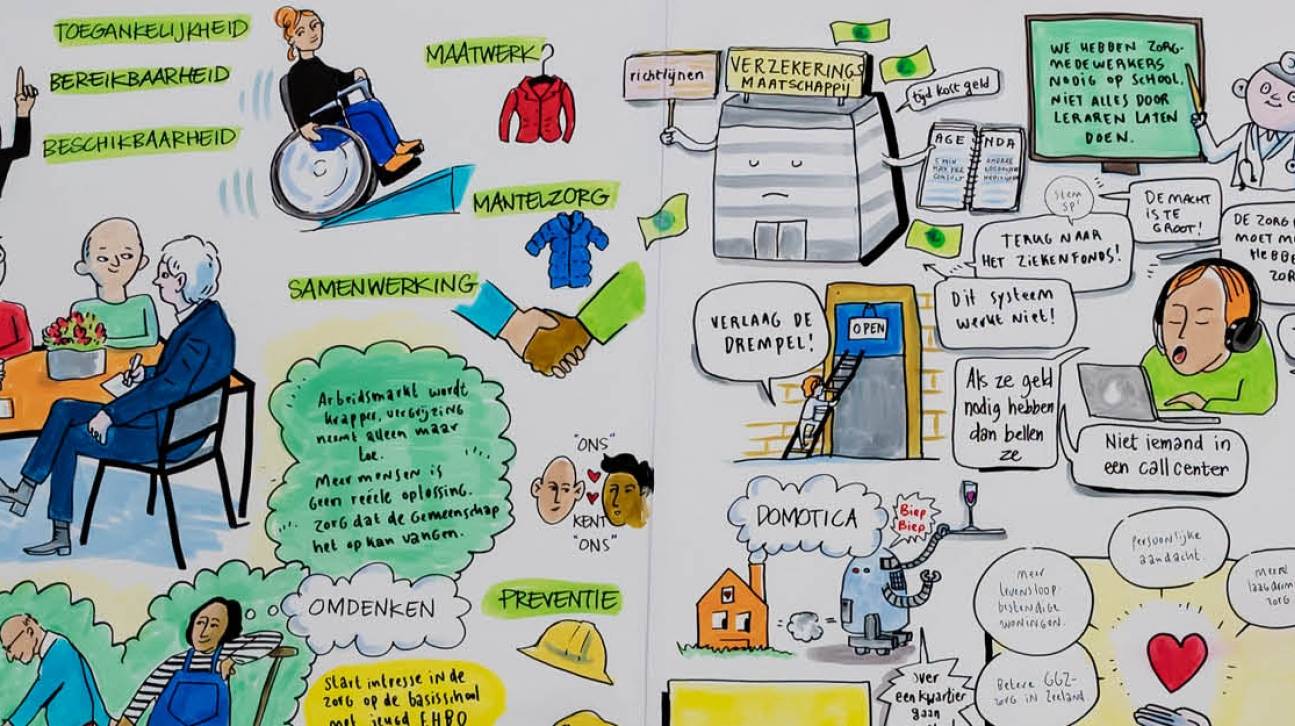 TOEGANKELIJKHEID
BEREIKBAARHEID
BESCHIKBAARHEID
MAATWERK
MANTELZORG
SAMENWERKING
Arbeidsmarkt wordt
krapper, vergrijzing
neemt alleen maar
toe.
Meer mensen is
geen reële oplossing.
Zorg dat de Gemeenschap
het op kan vangen.
"ONS"
KENT
"ONS"
OMDENKEN
PREVENTIE
Start intresse in de
zorg op de basisschool
met jeugd EHBO
richtlijnen
VERZEKERINGS
MAATSCHAPPIJ
tijd kost geld
AGENDA
5 MIN
MAX PER
CONSULT
WE HEBBEN ZORG-
MEDEWERKERS
NODIG OP SCHOOL.
NIET ALLES DOOR
LERAREN LATEN
DOEN.
Stem
SP!
DE MACHT
IS TE
GROOT!
TERUG NAAR
HET ZIEKENFONDS!
DE ZORG
MOET
HEBBE
ZOR
Dit systeem
werkt niet!
VERLAAG DE
DREMPEL!
OPEN
Als ze geld
nodig hebben
dan bellen
ze
Niet iemand in
een call center
DOMOTICA
Biep
Biep
over
een kwartier
gaan
Meer
levensloop-
bestendige
woningen.
Persoonlijke
aandacht.
Meer
laagdrem
zorg
Betere GGZ-
zorg in Zeeland.